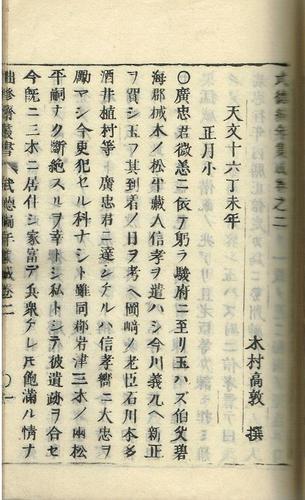 武德編年集成卷之二
木村高敦 撰
天文十六丁未年
正月小
〇廣忠君微恙ニ依テ躬ラ駿府ニ至リ玉ハズ伯父碧
海郡城木ノ松平藏人信孝ヲ遣ハシ今川義元ヘ新正
ヲ賀シ玉フ其到着ノ日ヲ考ヘ岡﨑ノ老臣石川本多
酒井植村等 廣忠君ニ達シチルハ信孝嚮ニ大忠ヲ
勵マシ今更犯セル科ナシト雖同郡岩津三木ノ兩松
平嗣ナク斷絶スルヲ幸トシ私トシテ彼遺跡ヲ合セ
今既ニ三木ニ居住シ家富デ兵衆チレ𪜈飽滿ル情ナ
武德編年集成卷二 〇一